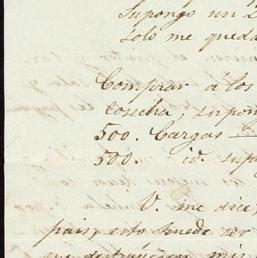 Supongo un 2
Solo me queda
Comprar á los
cosecha, supon
500. Cargas
500. id. sup
V. me dice,
pais, esto puede ser
me destruyeran mis